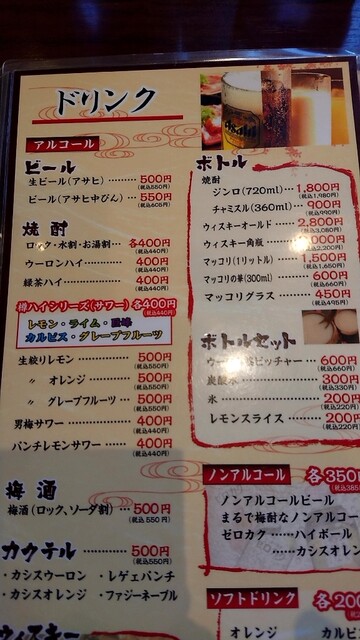 ドリンク
アルコール
ビール
生ビール(アサヒ)………500円
(税込550円)
ビール(アサヒ中びん)…550円
(税込605円)
焼酎
ロック・水割・お湯割…各400円
(税込440円)
ウーロンハイ………400円
(税込440円)
緑茶ハイ………400円
(税込440円)
樽ハイシリーズ(サワー)各400円
(税込440円)
レモン・ライム・
カルピス・グレープフルーツ
生絞りレモン………500円
(税込550円)
〃 オレンジ………500円
(税込550円)
〃 グレープフルーツ…500円
(税込550円)
男梅サワー………400円
(税込440円)
パンチレモンサワー…400円
(税込440円)
梅酒
梅酒(ロック、ソーダ割)…500円
(税込550円)
カクテル………500円
(税込550円)
・カシスウーロン ・レゲェパンチ
・カシスオレンジ ・ファジーネーブル
ウィスキー
Asahi
ボトル
焼酎
ジンロ(720ml)…1,800円
(税込1,980円)
チャミスル(360ml)…900円
(税込990円)
ウィスキーオールド…2,800円
(税込3,080円)
ウィスキー角瓶…000円
(税込2,200円)
マッコリ(1リットル)…1,500円
(税込1,650円)
マッコリの華(300ml)…600円
(税込660円)
マッコリグラス…450円
(税込495円)
ボトルセット
ピッチャー…600円
(税込660円)
炭酸水………300円
(税込330円)
氷………200円
(税込220円)
レモンスライス…200円
(税込220円)
ノンアルコール 各350円
(税込385円
ノンアルコールビール
まるで梅酒なノンアルコー
ゼロカク……ハイボール
……カシスオレン
ソフトドリンク 各200
オレンジ カルピ